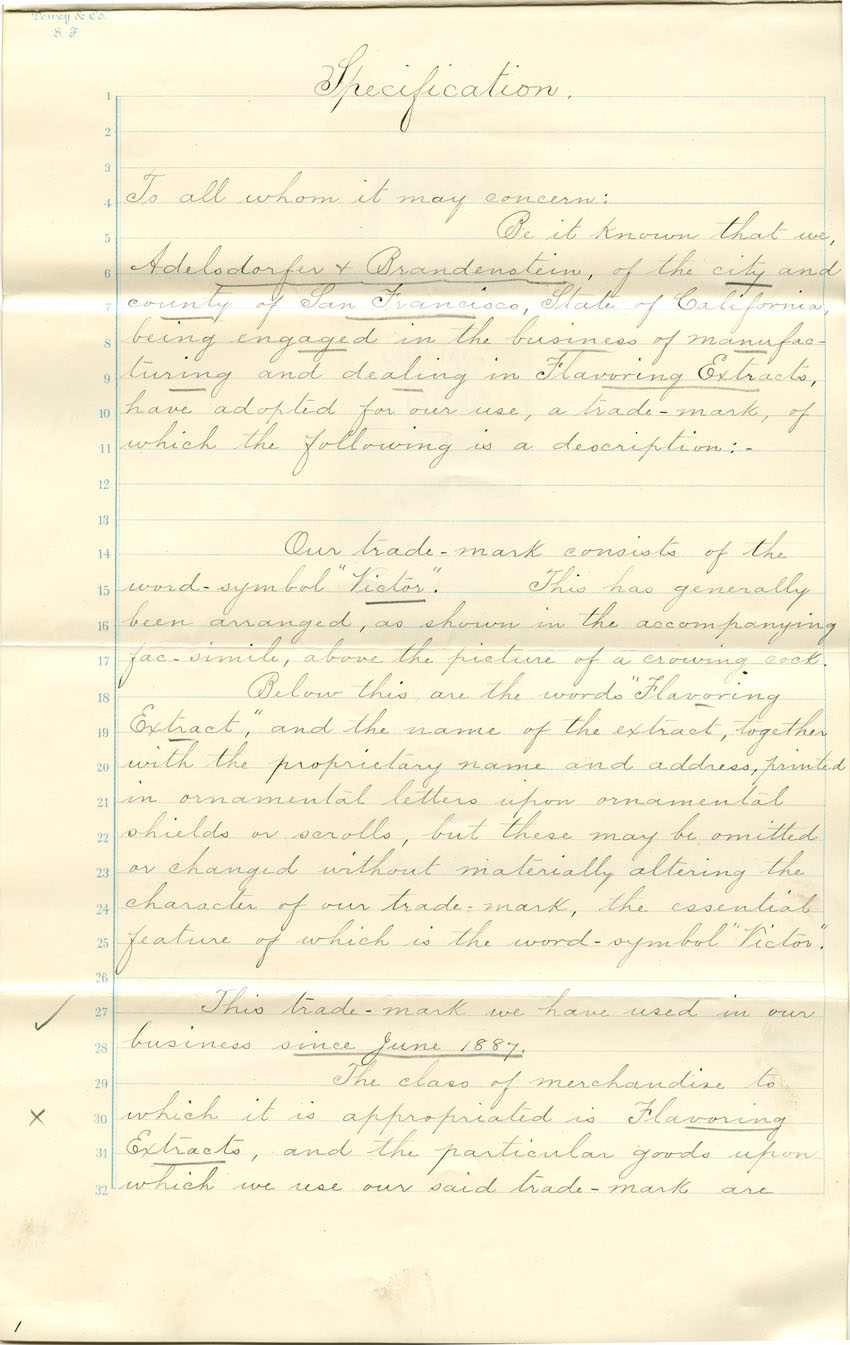 Dewey & Co.
S. F.
Specification.
1
2
3
4 To all whom it may concern:
5 Be it known that we,
6 Adelsdorfer & Brandenstein, of the city and
7 county of San Francisco, State of California,
8 being engaged in the business of manufac-
9 turing and dealing in Flavoring Extracts,
10 have adopted for our use, a trade-mark, of
11 which the following is a description:-
12
13
14 Our trade-mark consists of the
15 word-symbol "Victor". This has generally
16 been arranged, as shown in the accompanying
17 fac-simile, above the picture of a crowing cock.
18 Below this are the words "Flavoring
19 Extract," and the name of the extract, together
20 with the proprietary name and address, printed
21 in ornamental letters upon ornamental
22 shields or scrolls, but these may be omitted
23 or changed without materially altering the
24 character of our trade-mark, the essential
25 feature of which is the word-symbol "Victor".
26
27 This trade-mark we have used in our
28 business since June 1887.
29 The class of merchandise to
30 which it is appropriated is Flavoring
31 Extracts, and the particular goods upon
32 which we use our said trade-mark are
1